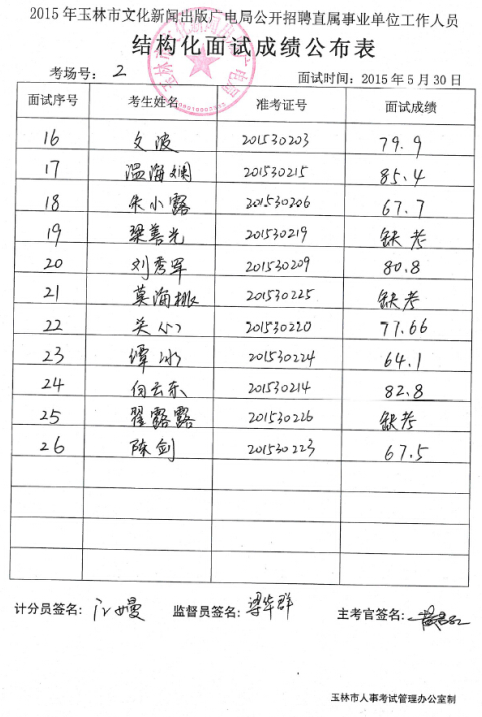 2015年玉林市文化新闻出版广电局公开招聘直属事业单位工作人员
结构化面试成绩公布表
考场号： 2 面试时间：2015年5月30日
面试序号 考生姓名 准考证号 面试成绩
16 文波 201530203 79.9
17 温海 201530215 85.4
18 朱小露 201530206 67.7
19 梁善光 201530219 缺考
20 刘秀军 201530209 80.8
21 莫海 201530225 缺考
22 201530220 77.66
23 谭冰 201530224 64.1
24 向云东 201530214 82.8
25 翟露露 201530226 缺考
26 陈剑 201530223 67.5
计分员签名： 监督员签名：梁华群 主考官签名：
玉林市人事考试管理办公室制